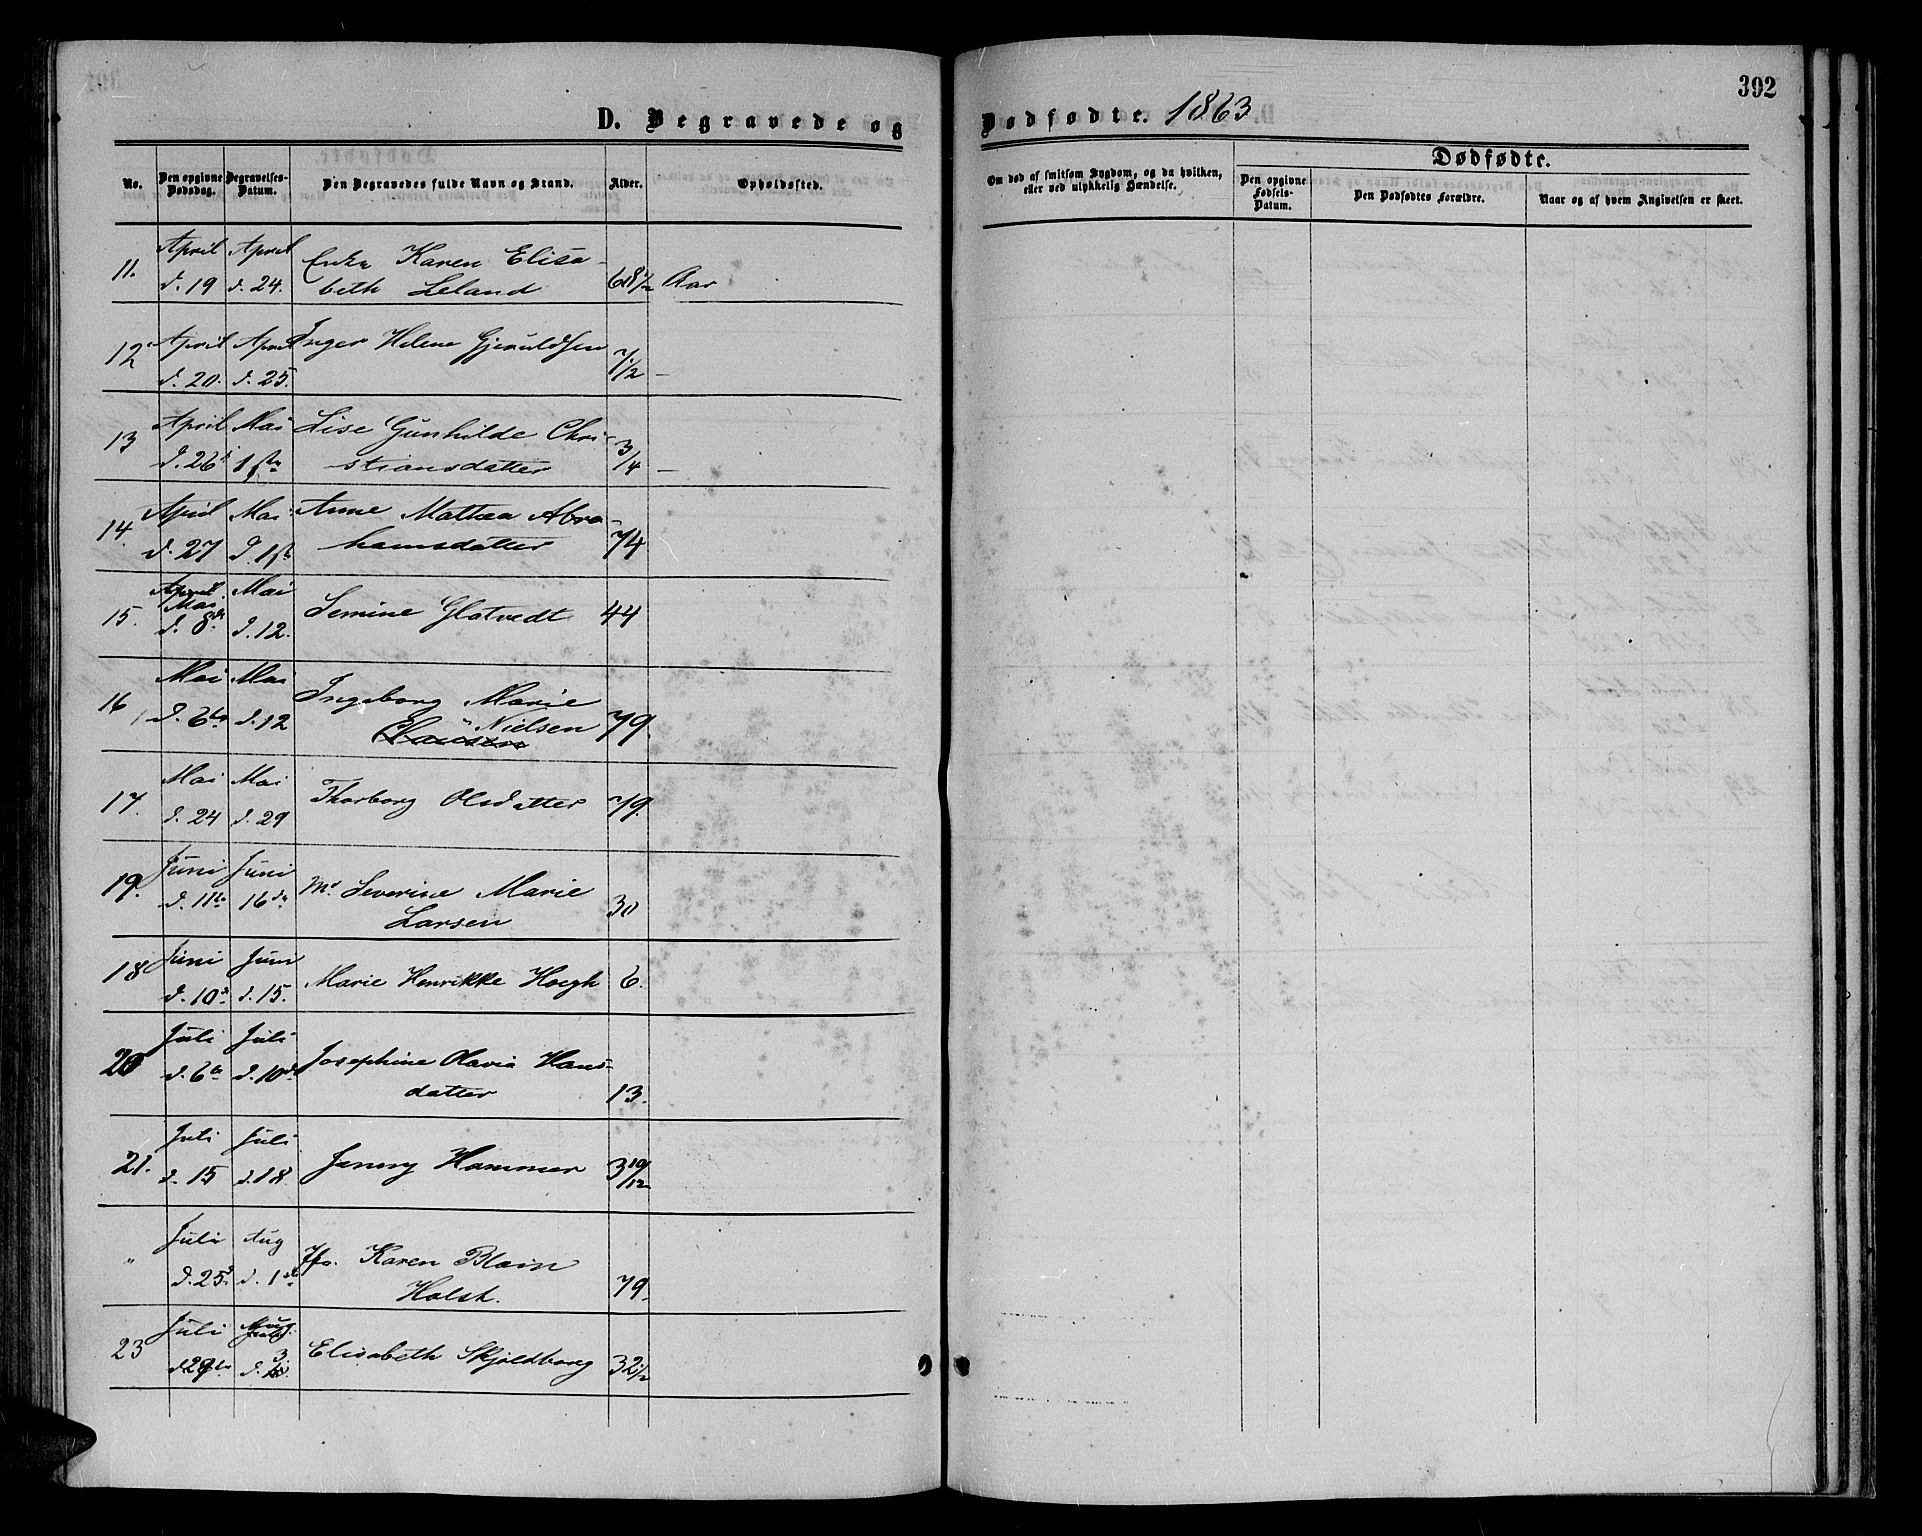 392
D. Begravede og Dødfødte. 1863
No. Den opgivne Dødsdag. Begravelses-Datum. Den Begravedes fulde Navn og Stand. Alder. Opholdssted. Om død af smitsom Sygdom, og da hvilken, eller ved ulykkelig Hændelse. Dødfødte.
Den opgivne Fødsels-Datum. Den Dødfødtes Forældre. Naar og af hvem Angivelsen er skeet.
11. April April Enke Karen Elisa-
d. 19 d. 24. beth Leland 68 1/2 Aar
12 April April Inger Helene Gjeruldsen
d. 20. d. 25. 7/12 —
13 April Mai Lise Gunhilde Chri-
d. 26 1ste stiansdatter 3/4 —
14. April Mai Anne Mathea Abra-
d. 27 d. 1ste hamsdatter 74
15. April Mai Mai Semine Glatvedt 44
d. 8de d. 12.
16 Mai Mai Ingeborg Marie
d. 6te d. 12 Clausen Nielsen 79.
17. Mai Mai Thorborg Olsdatter 79.
d. 24 d. 29
19. Juni Juni Md Severine Marie
d. 11te 16de Larsen 30
18 Juni Juni Marie Henrikke Hoegh 6.
d. 10de d. 15.
20 Juli Juli Josephine Olavia Hans-
d. 6te d. 10de datter 13.
21. Juli Juli Jenny Hammer 3 10/12
d. 15 d. 18
" Juli Aug Jfr. Karen Blom
d. 25 d. 1ste Holst. 79.
23 Juli Aug Elisabeth Skjoldborg 32 1/2
d. 29de d. 3